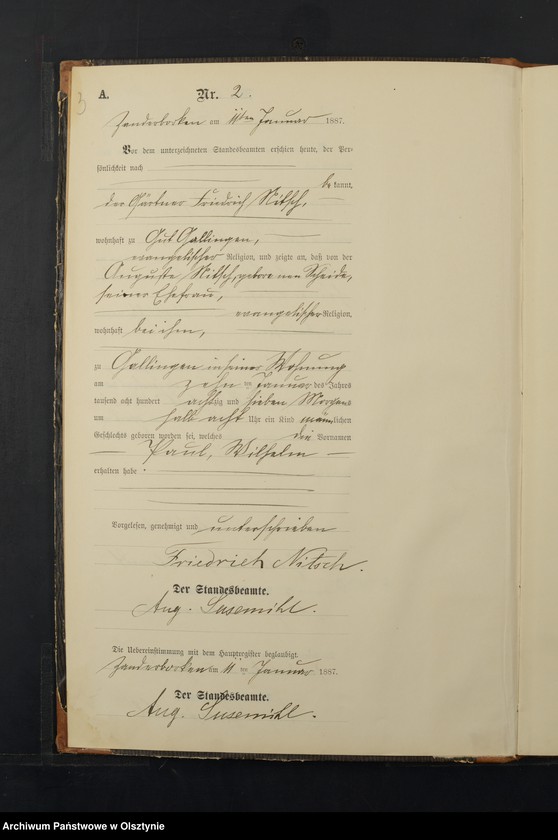 3
A.
Nr. 2.
Zanderborken am 11ten Januar 1887.
Vor dem unterzeichneten Standesbeamten erschien heute, der Per-
sönlichkeit nach
bekannt,
der Gärtner Friedrich Nitsch,
wohnhaft zu Gut Gallingen,
evangelischer Religion, und zeigte an, daß von der
Auguste Nitsch, geborenen Scheide,
seiner Ehefrau,
evangelischer Religion,
wohnhaft bei ihm,
zu Gallingen in seiner Wohnung
am zehn ten Januar des Jahres
tausend acht hundert achtzig und sieben Morgens
um halb acht Uhr ein Kind männlichen
Geschlechts geboren worden sei, welches die Vornamen
Paul, Wilhelm
erhalten habe
Vorgelesen, genehmigt und unterschrieben
Friedrich Nitsch.
Der Standesbeamte.
Aug. Susemihl.
Die Uebereinstimmung mit dem Hauptregister beglaubigt.
Zanderborken am 11 ten Januar 1887.
Der Standesbeamte.
Aug. Susemihl.
Archiwum Państwowe w Olsztynie